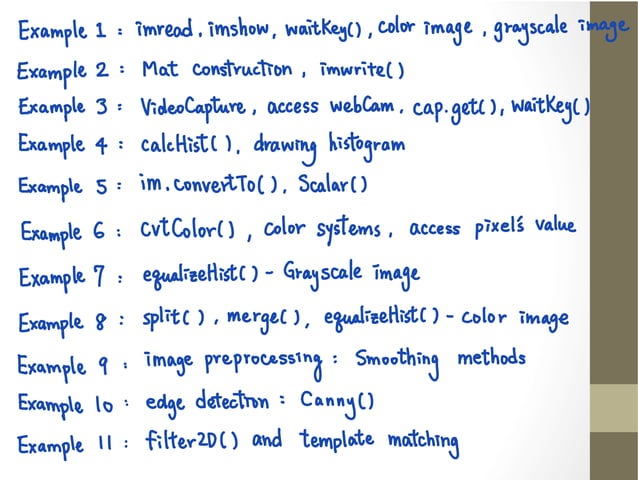 Example 1 : imread, imshow, waitKey(), color image, grayscale image
Example 2 : Mat construction, imwrite()
Example 3 : VideoCapture, access webCam, cap.get(), waitKey()
Example 4 : calcHist(), drawing histogram
Example 5 : im.convertTo(), Scalar()
Example 6 : cvtColor(), color systems, access pixel's value
Example 7 : equalizeHist() - Grayscale image
Example 8 : split(), merge(), equalizeHist() - color image
Example 9 : image preprocessing : Smoothing methods
Example 10 : edge detection : Canny()
Example 11 : filter2D() and template matching